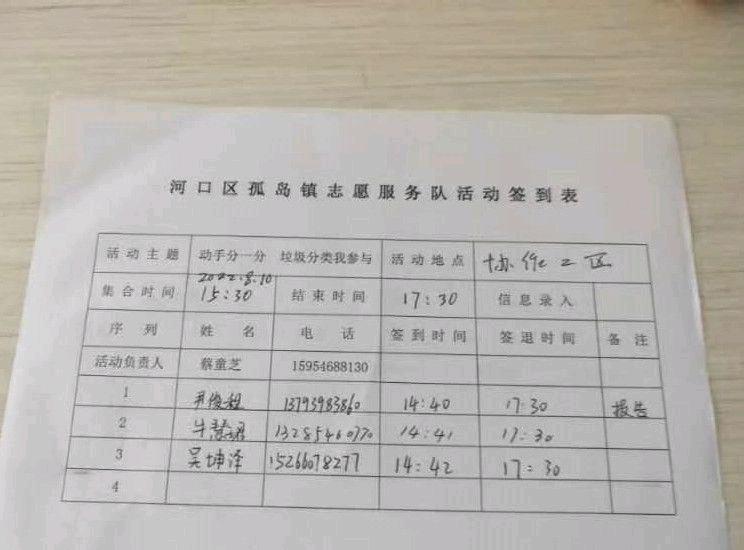 河口区孤岛镇志愿服务队活动签到表
活动主题 动手分一分 垃圾分类我参与 活动地点 协作二区
2022.8.10
集合时间 15:30 结束时间 17:30 信息录入
序列 姓名 电话 签到时间 签退时间 备注
活动负责人 蔡童芝 15954688130
1 13793983860 14:40 17:30 报告
2 13285460770 14:41 17:30
3 吴坤泽 15266078277 14:42 17:30
4